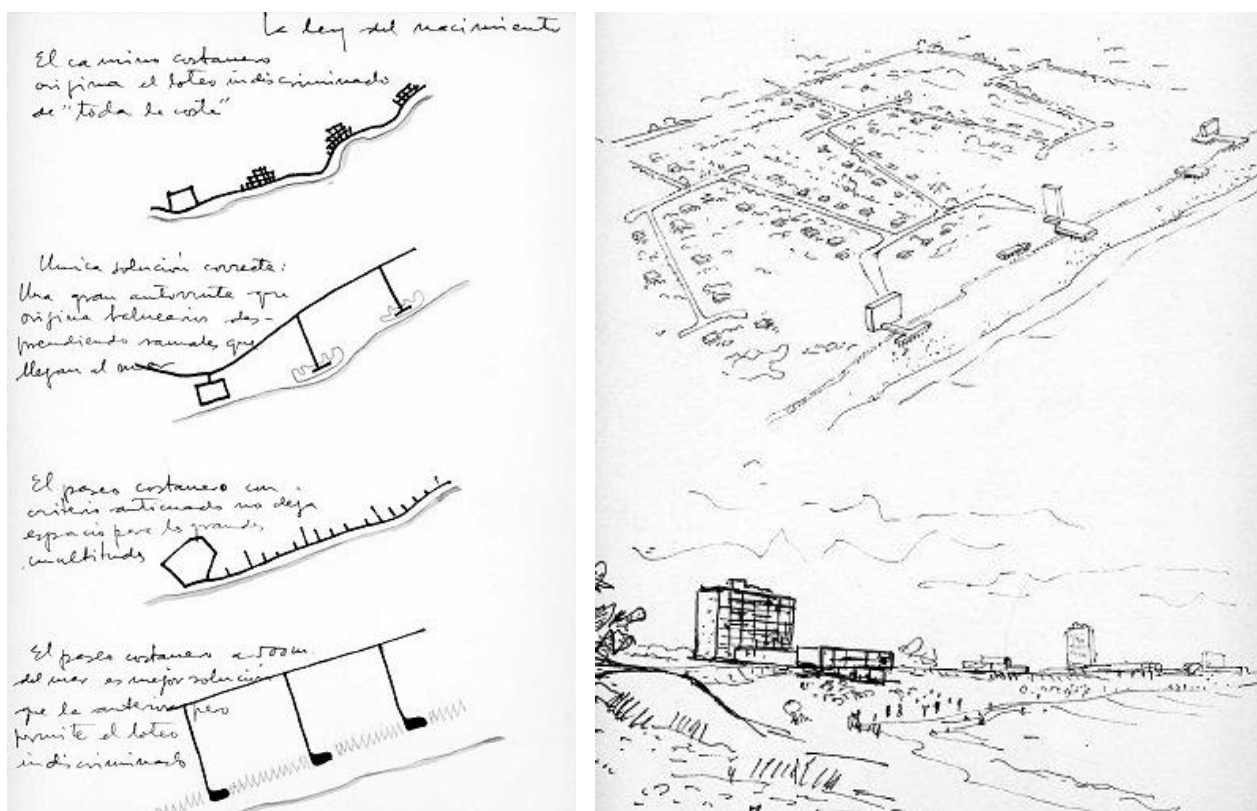 La ley del nacimiento
El camino costanero
origina el loteo indiscriminado
de "toda la costa"
Unica solución correcta:
Una gran autorruta que
origina balnearios des-
prendiendo ramales que
llegan al mar
El paseo costanero con
criterio anticuado no deja
espacio para las grandes
multitudes
El paseo costanero a
del mar es mejor solución
que la anterior pero
permite el loteo
indiscriminado